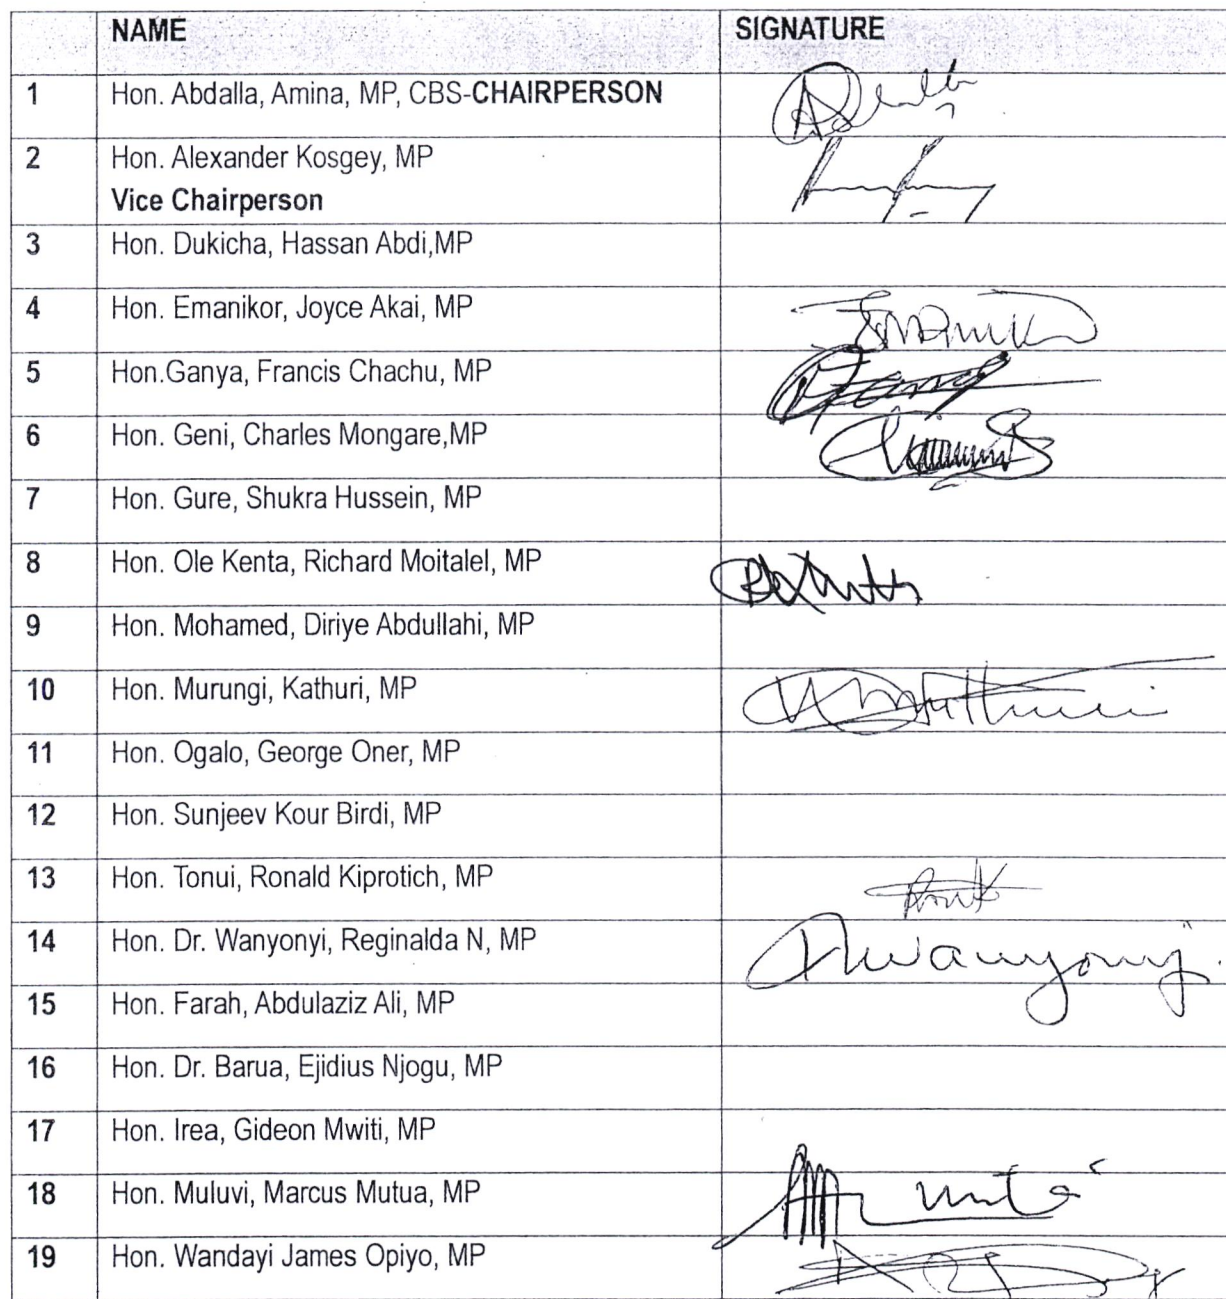 NAME SIGNATURE
1 Hon. Abdalla, Amina, MP, CBS-CHAIRPERSON
2 Hon. Alexander Kosgey, MP
Vice Chairperson
3 Hon. Dukicha, Hassan Abdi,MP
4 Hon. Emanikor, Joyce Akai, MP
5 Hon.Ganya, Francis Chachu, MP
6 Hon. Geni, Charles Mongare,MP
7 Hon. Gure, Shukra Hussein, MP
8 Hon. Ole Kenta, Richard Moitalel, MP
9 Hon. Mohamed, Diriye Abdullahi, MP
10 Hon. Murungi, Kathuri, MP
11 Hon. Ogalo, George Oner, MP
12 Hon. Sunjeev Kour Birdi, MP
13 Hon. Tonui, Ronald Kiprotich, MP
14 Hon. Dr. Wanyonyi, Reginalda N, MP
15 Hon. Farah, Abdulaziz Ali, MP
16 Hon. Dr. Barua, Ejidius Njogu, MP
17 Hon. Irea, Gideon Mwiti, MP
18 Hon. Muluvi, Marcus Mutua, MP
19 Hon. Wandayi James Opiyo, MP